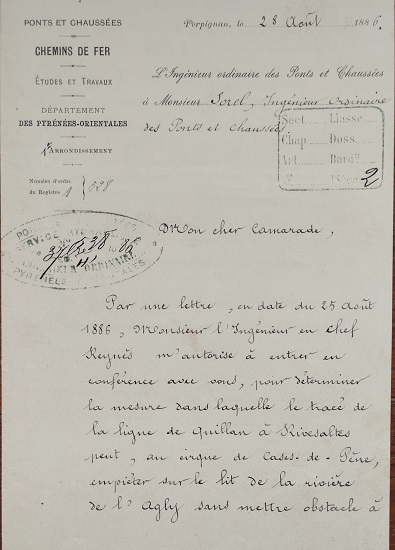 PONTS ET CHAUSSÉES
CHEMINS DE FER
ÉTUDES ET TRAVAUX
DÉPARTEMENT
DES PYRÉNÉES-ORIENTALES
ARRONDISSEMENT
Numéro d'ordre
du Registre 1
628
Perpignan, le 28 Août 1886.
L'Ingénieur ordinaire des Ponts et Chaussées
à Monsieur Sorel, Ingénieur Ordinaire
des Ponts et Chaussées.
Sect. Liasse
Chap. Doss.
Art. Bord.
2
ORDINAIRE
Mon cher Camarade,
Par une lettre, en date du 25 Août
1886, Monsieur l'Ingénieur en Chef
Keynès m'autorise à entrer en
conférence avec vous, pour déterminer
la mesure dans laquelle le tracé de
la ligne de Quillan à Rivesaltes
peut, au cirque de Cases-de-Pène,
empiéter sur le lit de la rivière
de l'Agly sans mettre obstacle à